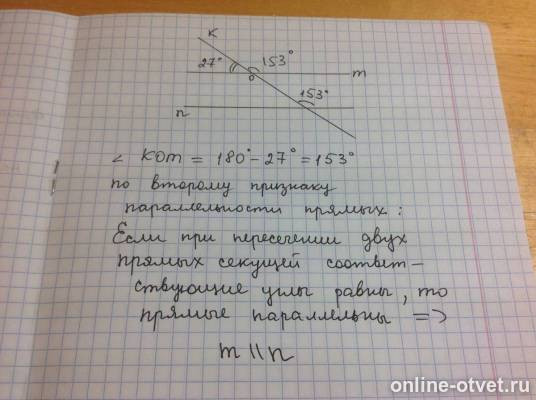 K
27° 153°
O m
153°
n
∠ KOm = 180° - 27° = 153°
по второму признаку
параллельности прямых:
Если при пересечении двух
прямых секущей соответ-
ствующие углы равны, то
прямые параллельны =>
m || n
online-otvet.ru